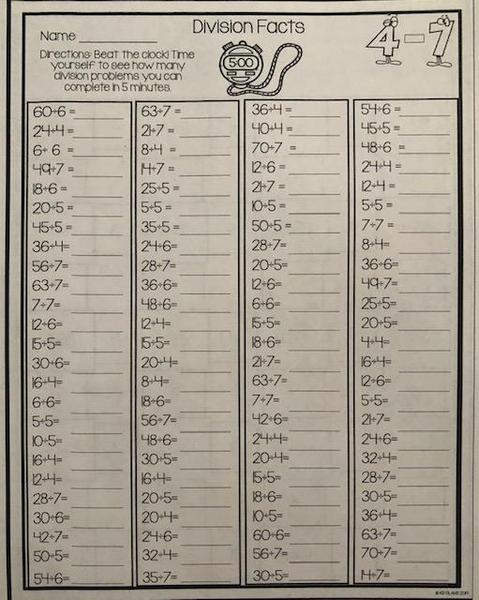 Division Facts
Name
5:00
4-7
Directions: Beat the clock! Time
yourself to see how many
division problems you can
complete in 5 minutes.
60÷6 =
24÷4 =
6÷ 6 =
49÷7 =
18÷6 =
20÷5 =
45÷5 =
36÷4=
56÷7=
63÷7=
7÷7=
12÷6=
15÷5=
30÷6=
16÷4=
6÷6=
5÷5=
10÷5=
16÷4=
12÷4=
28÷7=
30÷6=
42÷7=
50÷5=
54÷6=
63÷7 =
21÷7 =
8÷4 =
14÷7 =
25÷5 =
5÷5 =
35÷5 =
24÷6=
28÷7=
36÷6=
48÷6=
12÷4=
15÷5=
20÷4=
8÷4=
18÷6=
56÷7=
48÷6=
30÷5=
16÷4=
20÷5=
20÷4=
24÷6=
32÷4=
35÷7=
36÷4 =
40÷4 =
70÷7 =
12÷6 =
21÷7 =
10÷5 =
50÷5 =
28÷7=
20÷5=
12÷6=
6÷6=
15÷5=
18÷6=
21÷7=
63÷7=
7÷7=
42÷6=
24÷4=
20÷4=
15÷5=
18÷6=
10÷5=
60÷6=
56÷7=
30÷5=
54÷6 =
45÷5 =
48÷6 =
24÷4 =
12÷4 =
5÷5 =
7÷7 =
8÷4=
36÷6=
49÷7=
25÷5=
20÷5=
4÷4=
16÷4=
12÷6=
5÷5=
21÷7=
24÷6=
32÷4=
28÷7=
30÷5=
36÷4=
63÷7=
70÷7=
14÷7=